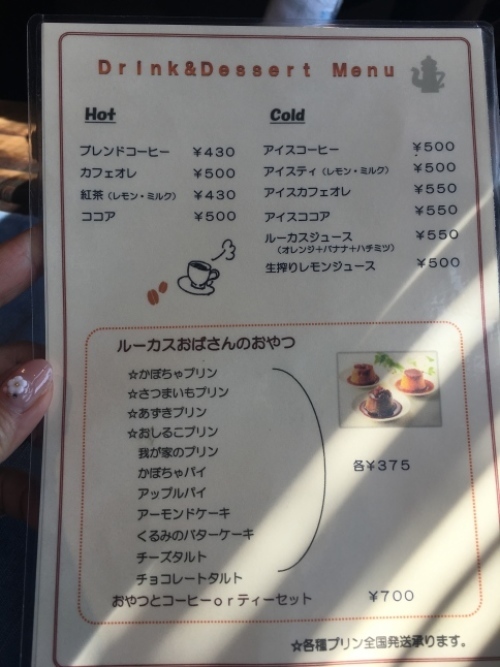 Drink&Dessert Menu
Hot
ブレンドコーヒー ￥430
カフェオレ ￥500
紅茶（レモン・ミルク） ￥430
ココア ￥500
Cold
アイスコーヒー ￥500
アイスティ（レモン・ミルク） ￥500
アイスカフェオレ ￥550
アイスココア ￥550
ルーカスジュース ￥550
（オレンジ＋バナナ＋ハチミツ）
生搾りレモンジュース ￥500
ルーカスおばさんのおやつ
☆かぼちゃプリン
☆さつまいもプリン
☆あずきプリン
☆おしるこプリン
我が家のプリン
かぼちゃパイ
アップルパイ
アーモンドケーキ
くるみのバターケーキ
チーズタルト
チョコレートタルト
各￥375
おやつとコーヒーｏｒティーセット ￥700
☆各種プリン全国発送承ります。